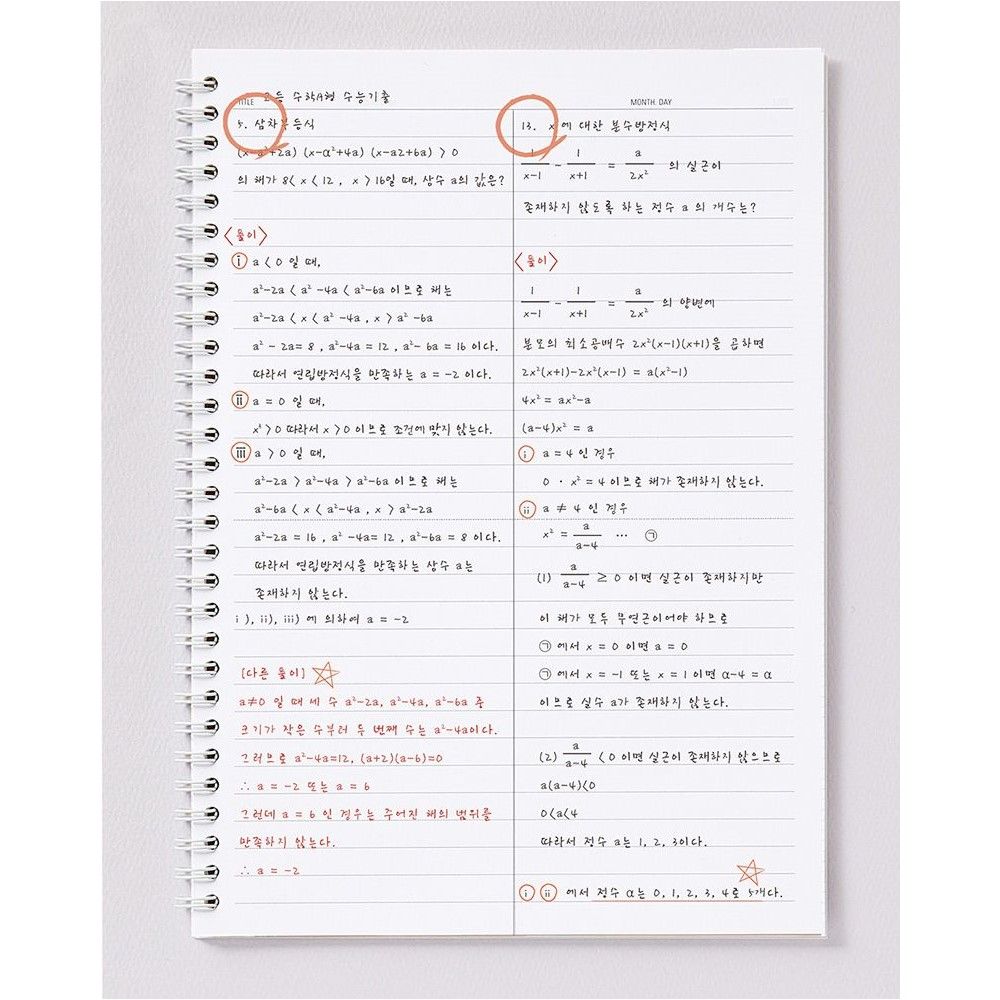 TITLE 고등 수학A형 수능기출
5. 삼차부등식
(x-a²+2a) (x-α²+4a) (x-a2+6a) > 0
의 해가 8< x < 12 , x > 16일 때, 상수 a의 값은?
<풀이>
ⅰ a < 0 일 때,
a²-2a < a² -4a < a²-6a 이므로 해는
a²-2a < x < a² -4a , x > a² -6a
a² - 2a= 8 , a²-4a = 12 , a²- 6a = 16 이다.
따라서 연립방정식을 만족하는 a = -2 이다.
ⅱ a = 0 일 때,
x³ > 0 따라서 x > 0 이므로 조건에 맞지 않는다.
ⅲ a > 0 일 때,
a²-2a > a²-4a > a²-6a 이므로 해는
a²-6a < x < a²-4a , x > a²-2a
a²-2a = 16 , a² -4a= 12 , a²-6a = 8 이다.
따라서 연립방정식을 만족하는 상수 a는
존재하지 않는다.
i ), ii), iii) 에 의하여 a = -2
[다른 풀이] ☆
a≠0 일 때 세 수 a²-2a, a²-4a, a²-6a 중
크기가 작은 수부터 두 번째 수는 a²-4a이다.
그러므로 a²-4a=12, (a+2)(a-6)=0
∴ a = -2 또는 a = 6
그런데 a = 6 인 경우는 주어진 해의 범위를
만족하지 않는다.
∴ a = -2
MONTH. DAY
13. x 에 대한 분수방정식
1/(x-1) - 1/(x+1) = a/(2x²) 의 실근이
존재하지 않도록 하는 정수 a 의 개수는?
<풀이>
1/(x-1) - 1/(x+1) = a/(2x²) 의 양변에
분모의 최소공배수 2x²(x-1)(x+1)을 곱하면
2x²(x+1)-2x²(x-1) = a(x²-1)
4x² = ax²-a
(a-4)x² = a
ⅰ a = 4 인 경우
0 · x² = 4 이므로 해가 존재하지 않는다.
ⅱ a ≠ 4 인 경우
x² = a/(a-4) … ㉠
(1) a/(a-4) ≥ 0 이면 실근이 존재하지만
이 해가 모두 무연근이어야 하므로
㉠ 에서 x = 0 이면 a = 0
㉠ 에서 x = -1 또는 x = 1 이면 α-4 = α
이므로 실수 a가 존재하지 않는다.
(2) a/(a-4) < 0 이면 실근이 존재하지 않으므로
a(a-4)<0
0<a<4
따라서 정수 a는 1, 2, 3이다.
☆
ⅰ ⅱ 에서 정수 α는 0, 1, 2, 3, 4로 5개다.